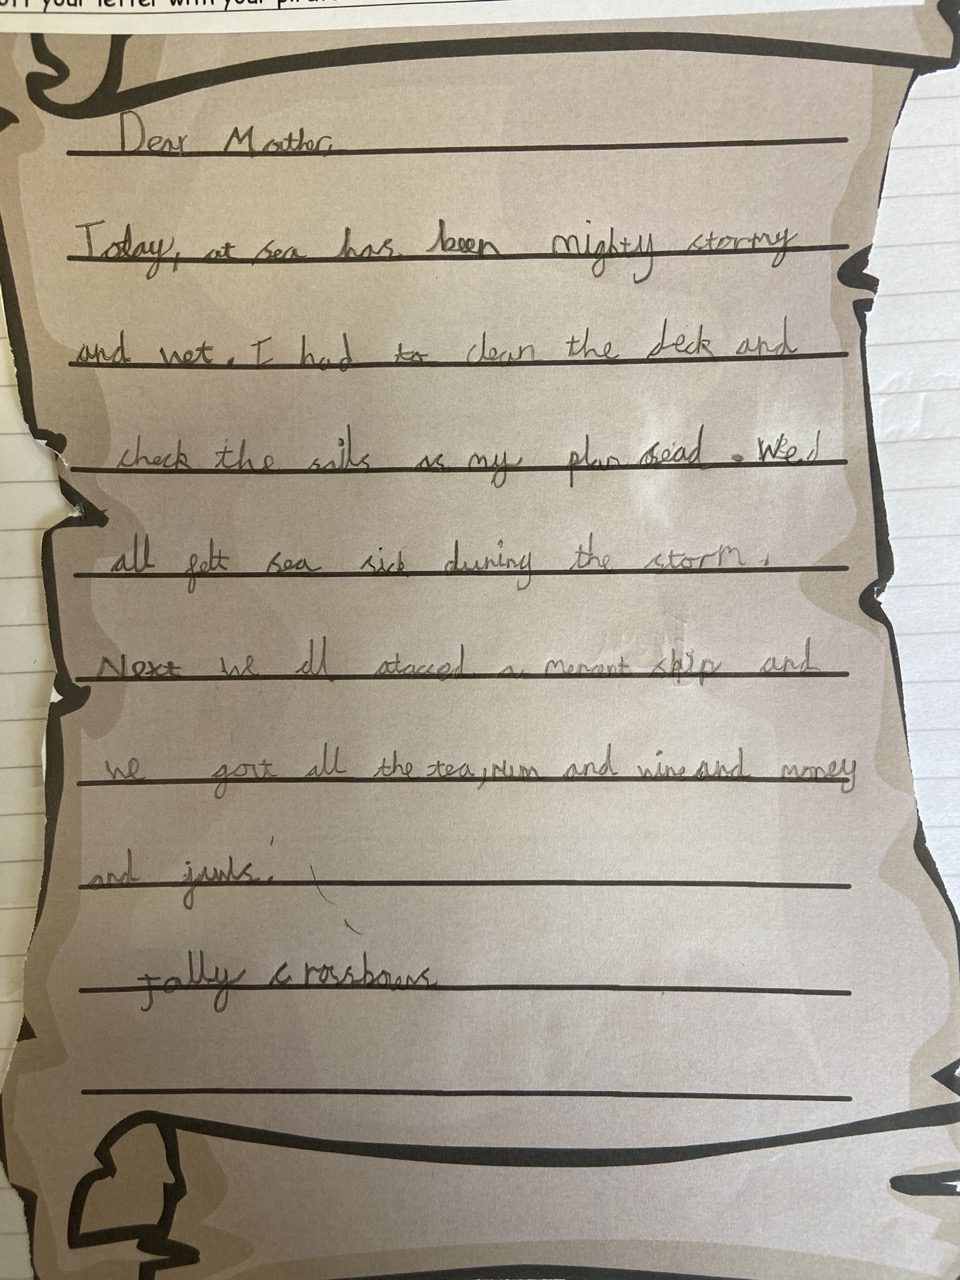 off your letter with your pirate
Dear Mother,
Today, at sea has been mighty stormy
and wet. I had to clean the deck and
check the sails as my plan said. We
all felt sea sick during the storm.
Next we all atacced a merant ship and
we gort all the tea, rum and wine and money
and juwls.
Jolly crossbows